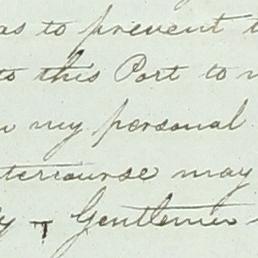 as to prevent
to this Port to
my personal
ntercourse may
Gentlemen